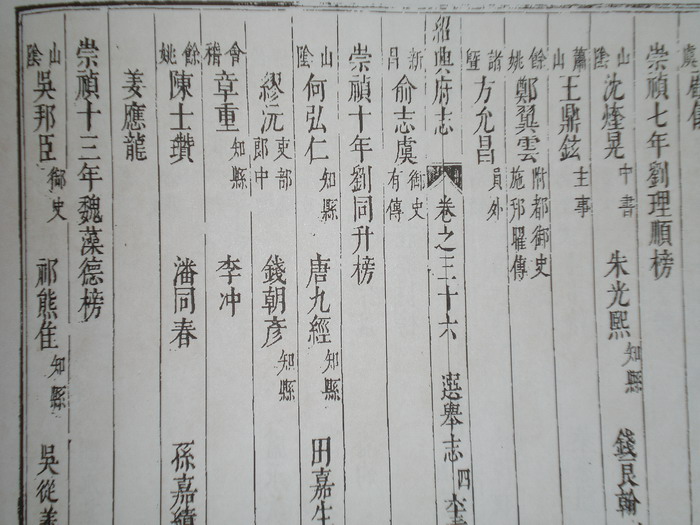 崇禎七年劉理順榜
山陰 沈燧晃 中書 朱光熙 知縣 錢良翰
蕭山 王鼎鉉 主事
餘姚 鄭翼雲 附都御史施邦曜傳
諸暨 方允昌 員外
紹興府志 卷之三十六 選舉志四
新昌 俞志虞 御史有傳
崇禎十年劉同升榜
山陰 何弘仁 知縣 唐九經 知縣 田嘉生
繆沅 吏部郎中 錢朝彥 知縣
會稽 章重 知縣 李冲
餘姚 陳士瓚 潘同春 孫嘉績
姜應龍
崇禎十三年魏藻德榜
山陰 吳邦臣 御史 祁熊佳 知縣 吳從義